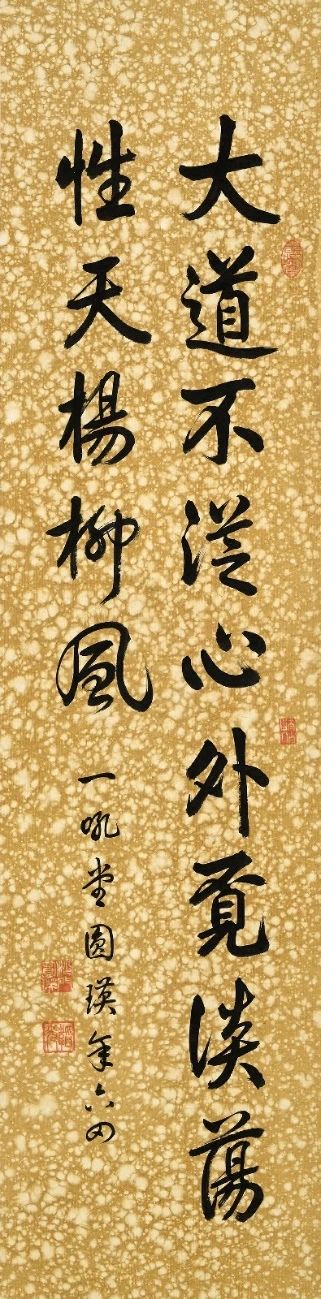 大道不從心外覓淡蕩
性天楊柳風
一吼堂圓瑛年六四